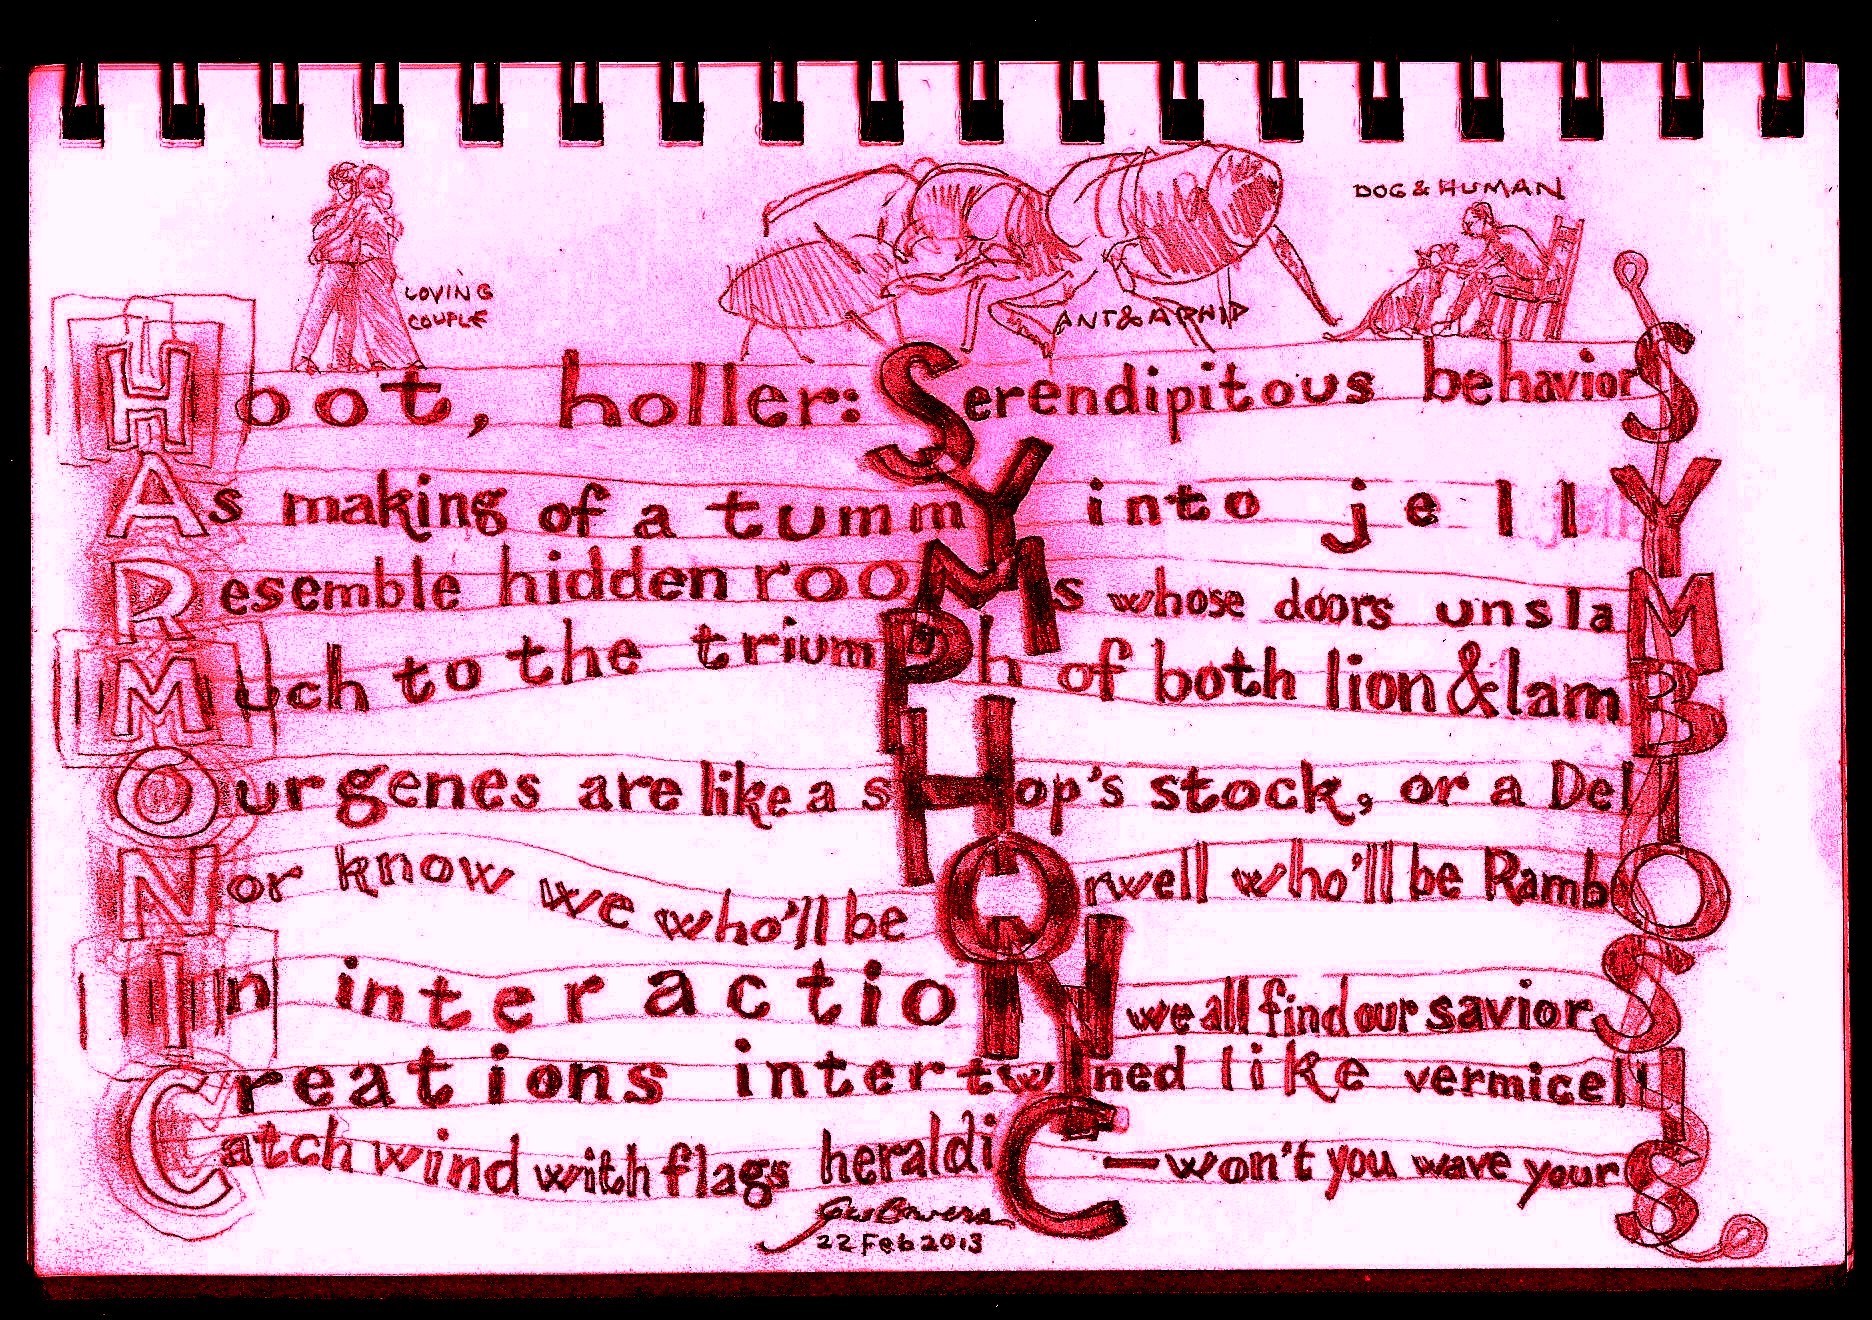 DOG & HUMAN
LOVING
COUPLE
ANT & APHID
Hoot, holler: Serendipitous behaviorS
As making of a tummY into jellY
Resemble hidden rooMs whose doors unslaM
Much to the triumPh of both lion & lamB
Our genes are like a sHop's stock, or a DelI
Nor know we who'll be Orwell who'll be RambO
In interactioN we all find our saviorS
Creations intertwIned like vermicellI
Catch wind with flags heraldiC—won't you wave yourS
Gary Bowers
22 Feb 2013